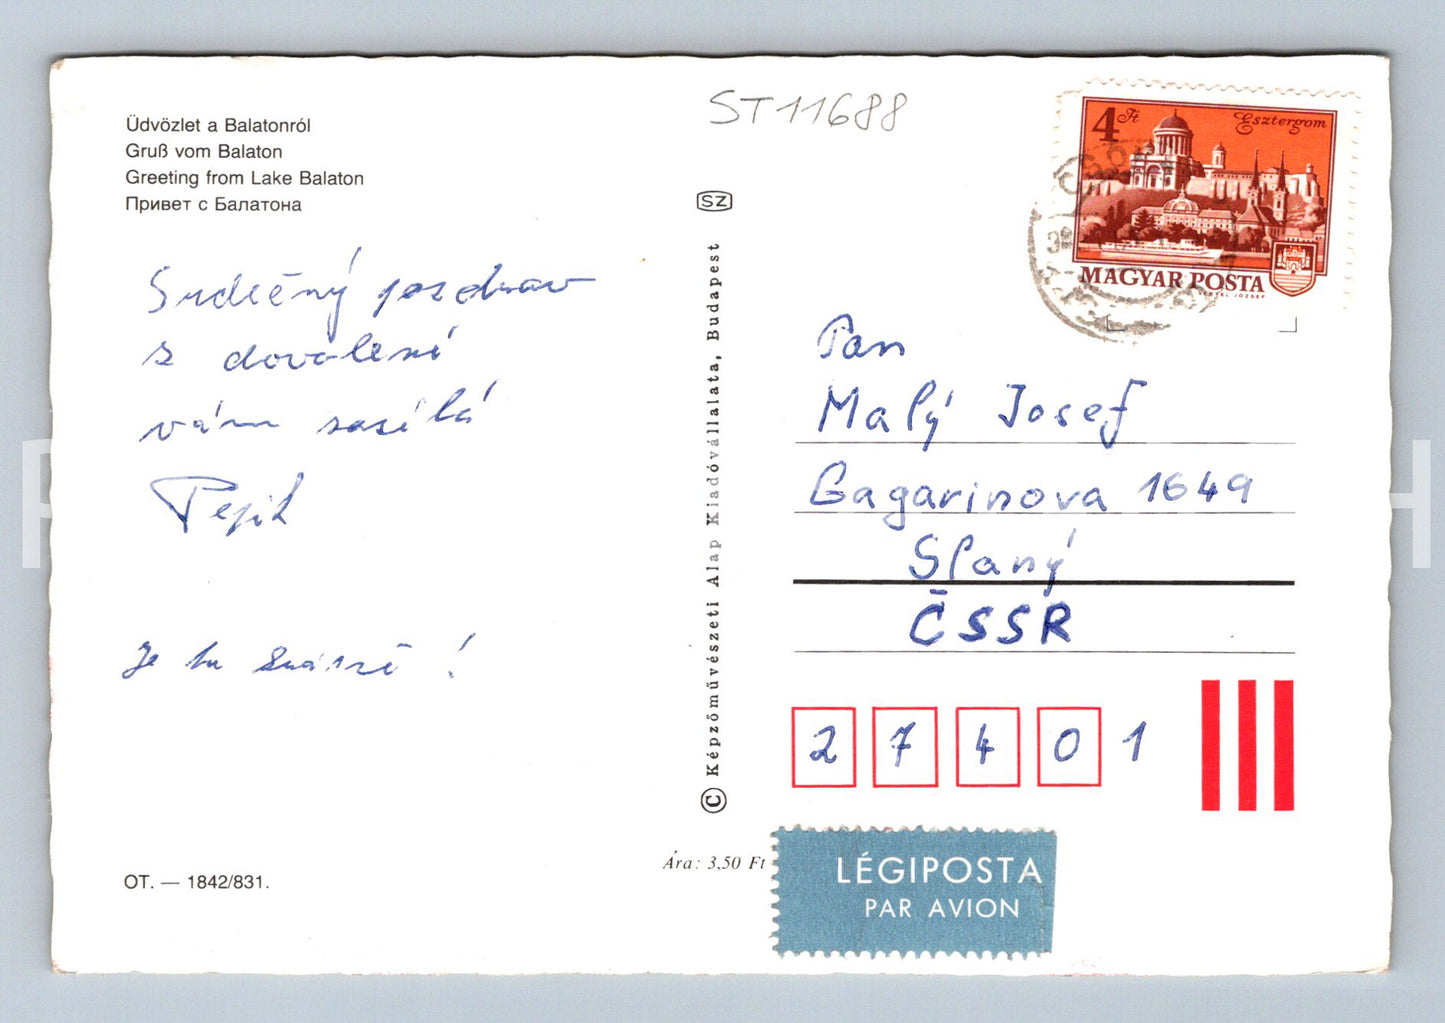 Üdvözlet a Balatonról
Gruß vom Balaton
Greeting from Lake Balaton
Привет с Балатона
Srdečný pozdrav
z dovolené
vám zasílá
Pepík
Je tu krásně !
OT. — 1842/831.
ST11688
SZ
© Képzőművészeti Alap Kiadóvállalata, Budapest
Ára: 3,50 Ft
4 Ft
Esztergom
MAGYAR POSTA
Pan
Malý Josef
Gagarinova 1649
Slaný
ČSSR
2 7 4 0 1
LÉGIPOSTA
PAR AVION